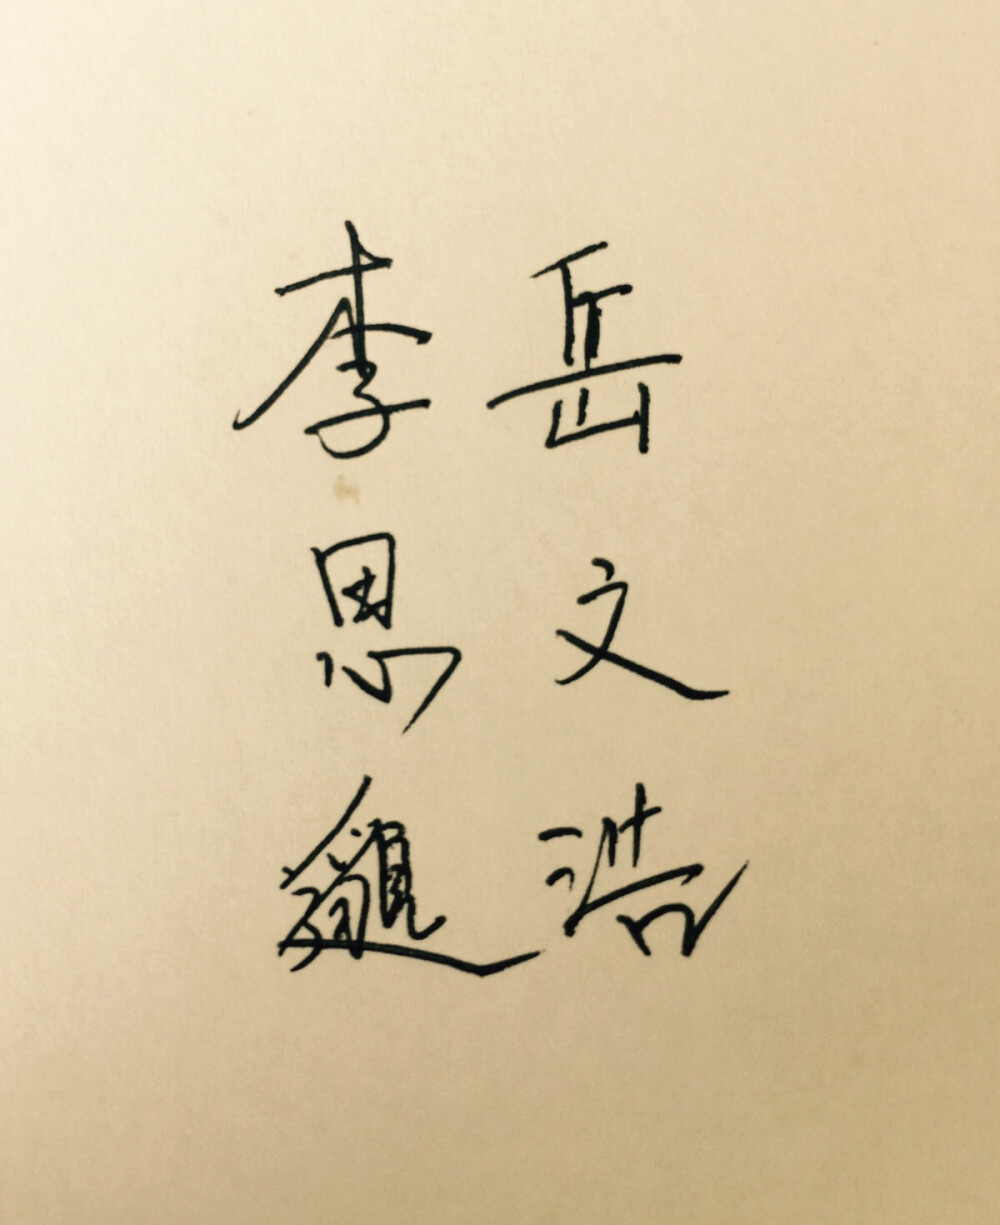 岳文浩
李思邈